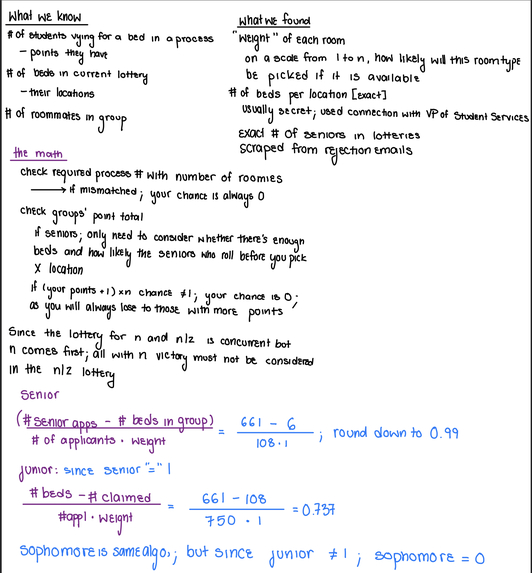 What we know
# of students vying for a bed in a process
- points they have
# of beds in current lottery
- their locations
# of roommates in group
what we found
"weight" of each room
on a scale from 1 to n, how likely will this room type
be picked if it is available
# of beds per location [exact]
usually secret; used connection with VP of Student Services
exact # of seniors in lotteries
scraped from rejection emails
the math
check required process # with number of roomies
→ if mismatched; your chance is always 0
check groups' point total
if seniors; only need to consider whether there's enough
beds and how likely the seniors who roll before you pick
X location
if (your points +1) xn chance ≠ 1; your chance is 0;
as you will always lose to those with more points
Since the lottery for n and n/2 is concurrent bot
n comes first; all with n victory must not be considered
in the n/2 lottery
Senior
(# senior apps - # beds in group) / # of applicants · weight = 661 - 6 / 108 · 1 ; round down to 0.99
junior: since senior "=" 1
# beds - # claimed / #appl · weight = 661 - 108 / 750 · 1 = 0.737
sophomore is same algo,; but since junior ≠ 1 ; sophomore = 0